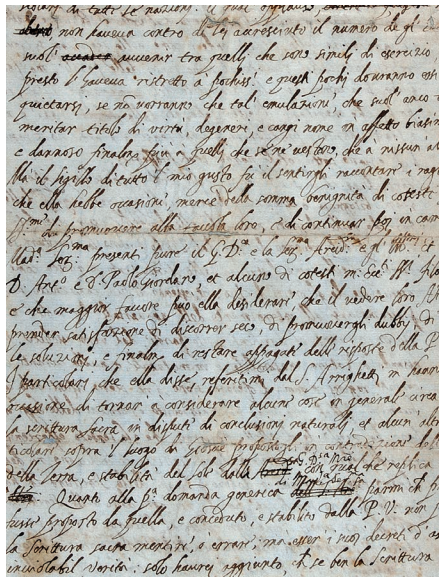 scolari di tutte le nazioni: il qual applauso
non haveva contro di lei accresciuto il numero de gli e
suol' avvenir tra quelli che sono simili di esercizio
presto l'haveva ristretto à pochiss.i e questi pochi dovranno essi
quietarsi, se nõ vorranno che tal' emulazione, che suol' anco
meritar titolo di virtù, degeneri e cangi nome in affetto biasim
e dannoso finalm.te più a quelli che se ne veston, che a nissun al
Ma il sigillo di tutto il mio gusto fu il sentirgli raccontare i ragi
che ella hebbe occasione, mercè della somma benignità di coteste
di promuovere alla tavola loro, e di continuar poi in cam
Mad.a Ser.ma presenti pure il G.D.a e la Ser.ma Arcid.a e gl' Ill.mi et
D. Ant.o e D. Paolo Giordano, et alcuni di cotesti m: ecc.ti ss.i filo
e che maggior favore può ella desiderare, che il vedere loro Al
prender satisfazione di discorrer seco, di promuovergli dubbi, di
le soluzioni, e finalm.te di restare appagate delle risposte della P.
I particolari, che ella disse, referitimi dal S. Arrighetti, mi hann
occasione di tornar' à considerare alcune cose in generale circa
la scrittura sacra in dispute di conclusioni naturali, et alcun' altr
ticolari sopra il luogo di Giosue proposto in contradizione
della Terra, e stabilità del sole dalla con qualche replica
Quanto alla p.a domanda generica parmi ch
fusse proposto da quella, e conceduto, e stabilito dalla P. V. non
la Scrittura sacra mentire, ò errare, ma esser i suoi decreti d' as
inviolabil verità: solo haurei aggiunto, ch se ben la Scrittura